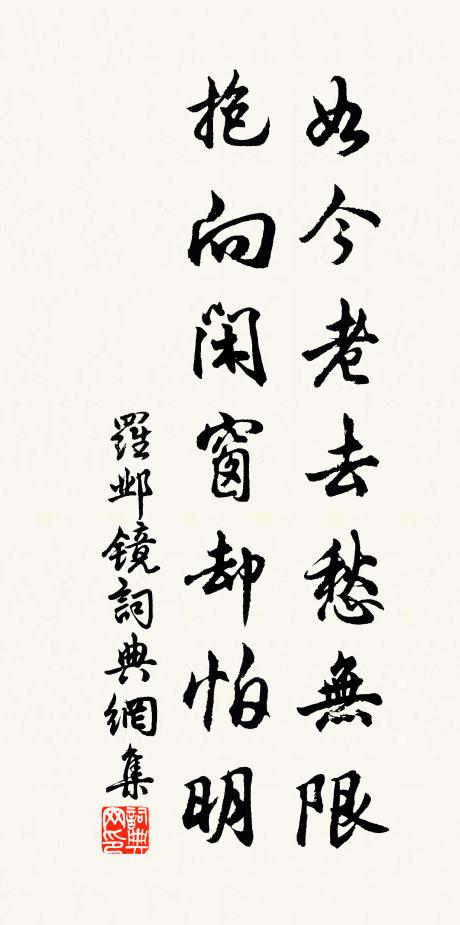 如今老去愁無限
抱向閑窗却怕明
羅邺鏡詞典網集
詞典網印